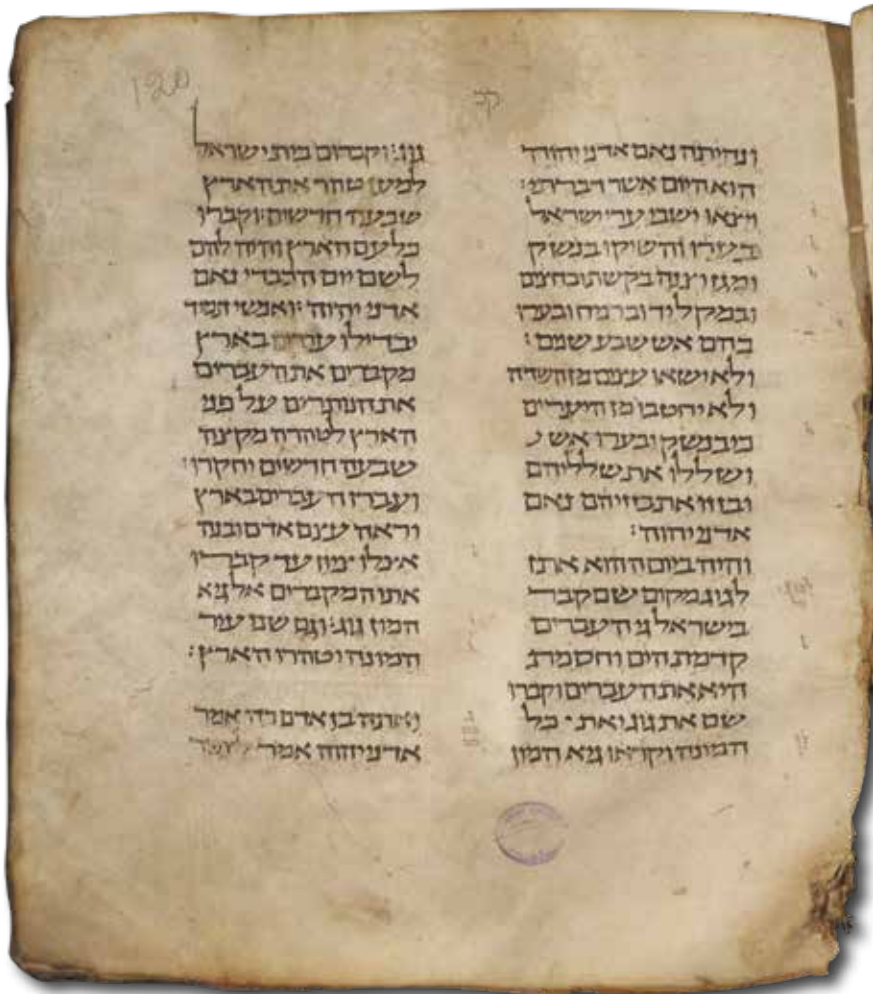 120
קכ
ונהיתה נאם אדני יהוה
הוא היום אשר דברתי:
ויצאו ישבי ערי ישראל
ובערו והשיקו בנשק
ומגן וצנה בקשת ובחצים
ובמקל יד וברמח ובערו
בהם אש שבע שנים:
ולא ישאו עצים מן השדה
ולא יחטבו מן היערים
כי בנשק יבערו אש
ושללו את שלליהם
ובזזו את בזזיהם נאם
אדני יהוה:
והיה ביום ההוא אתן
לגוג מקום שם קבר
בישראל גי העברים
קדמת הים וחסמת
היא את העברים וקברו
שם את גוג ואת כל
המונה וקראו גיא המון
גוג: וקברום בית ישראל
למען טהר את הארץ
שבעה חדשים: וקברו
כל עם הארץ והיה להם
לשם יום הכבדי נאם
אדני יהוה: ואנשי תמיד
יבדילו עברים בארץ
מקברים את העברים
את הנותרים על פני
הארץ לטהרה מקצה
שבעה חדשים יחקרו:
ועברו העברים בארץ
וראה עצם אדם ובנה
אצלו ציון עד קברו
אתו המקברים אל גיא
המון גוג: וגם שם עיר
המונה וטהרו הארץ:
ואתה בן אדם כה אמר
אדני יהוה אמר לצפור